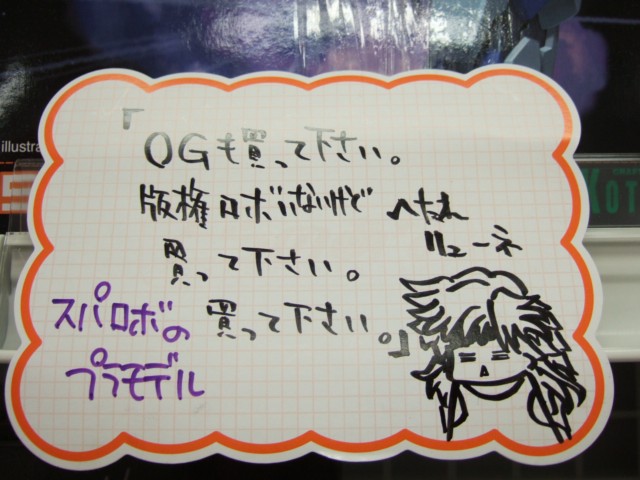 「OGも買って下さい。
版権ロボいないけど
買って下さい。
買って下さい。」
へたれ
リューネ
スパロボの
プラモデル
illustra
KOT